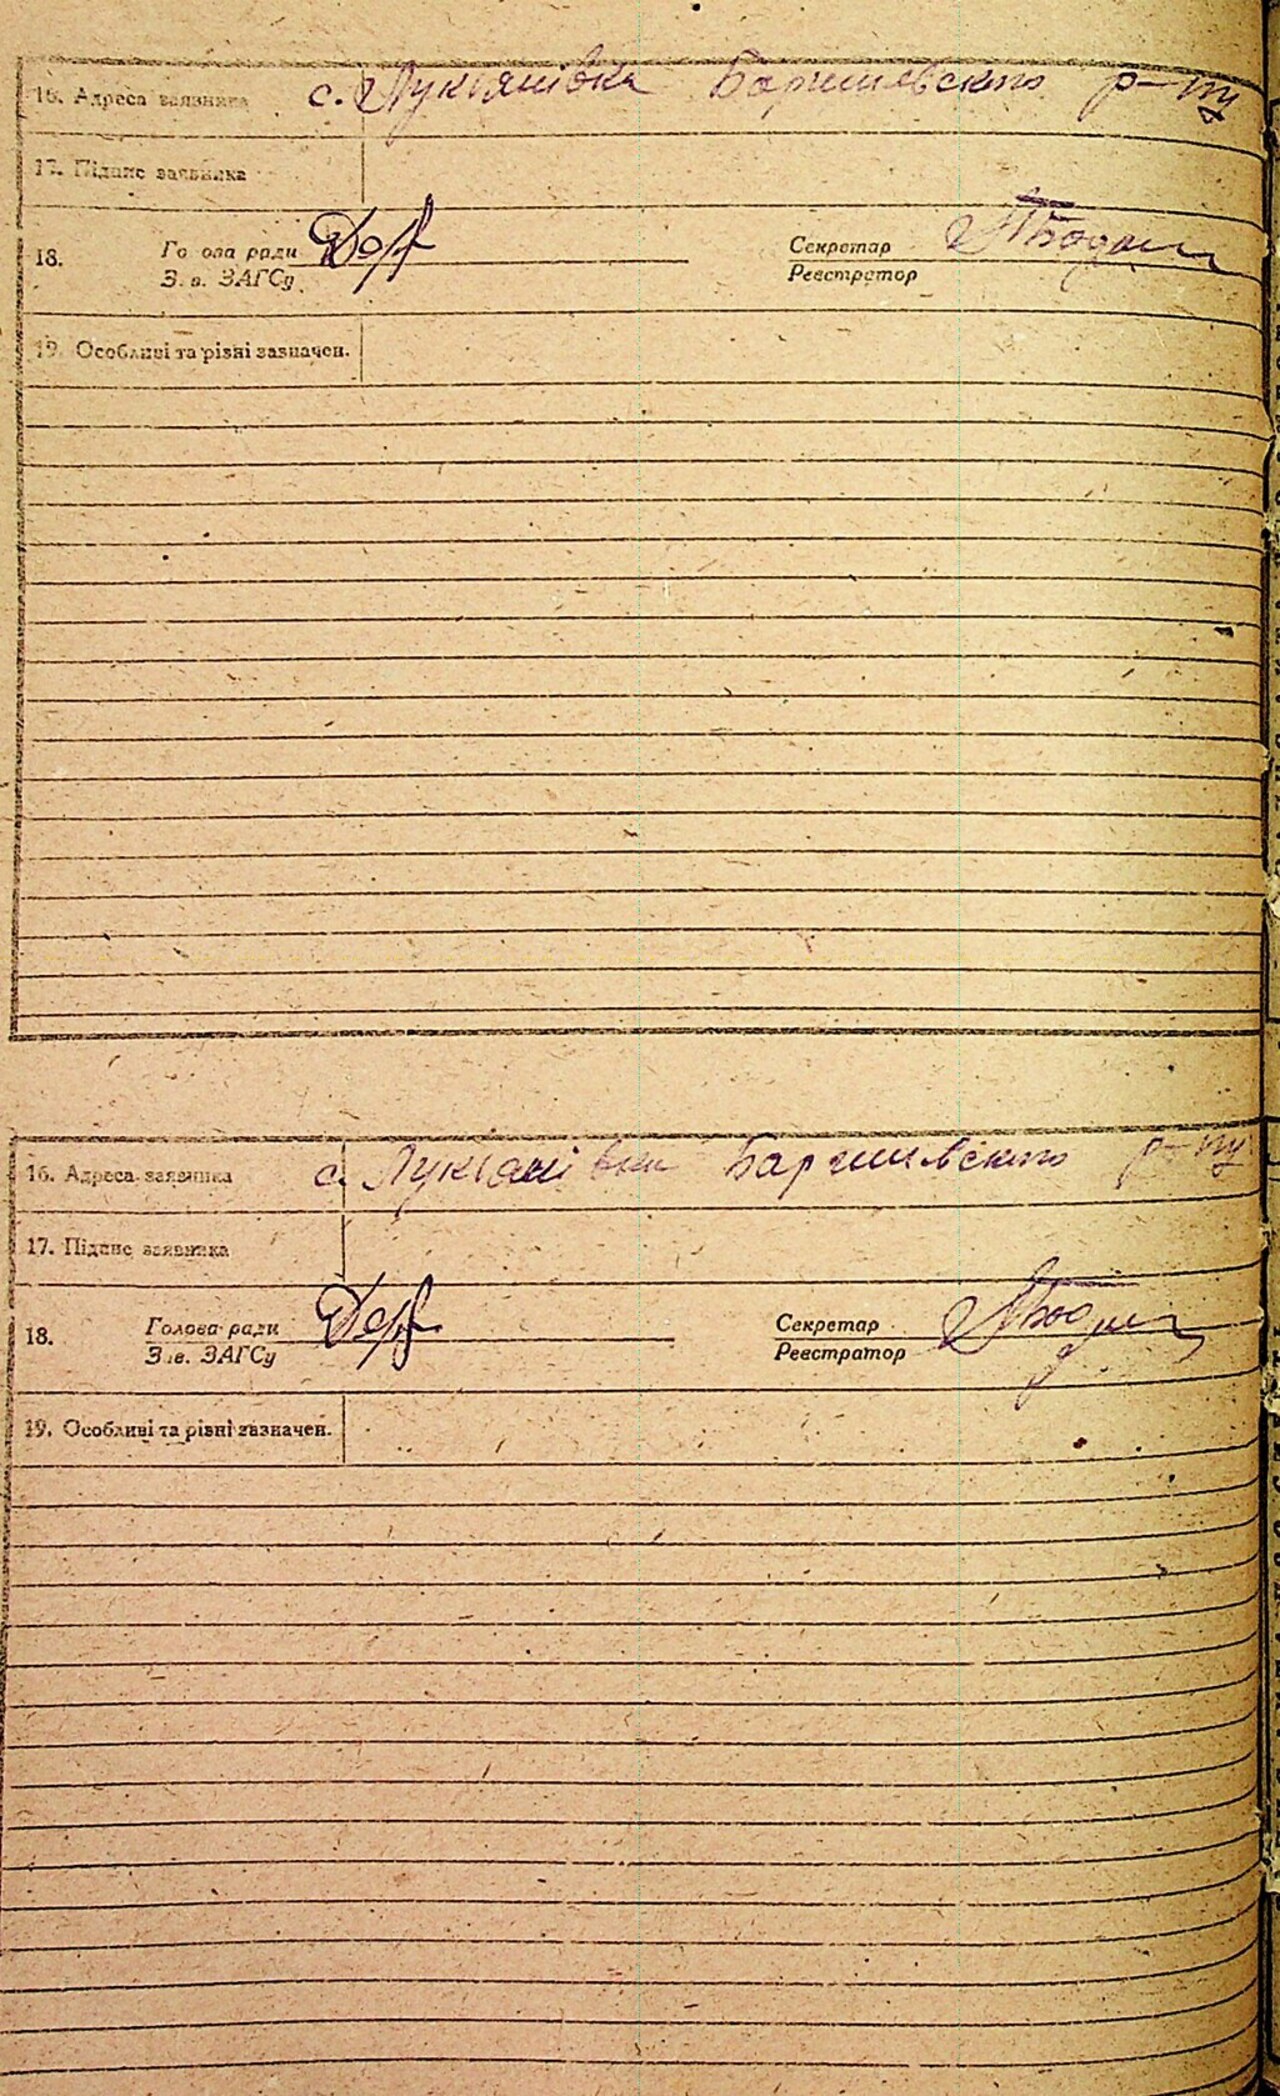 16. Адреса заявника с. Лукіянівка Баришевського р-ну
17. Підпис заявника
18. Го ова ради Секретар
З. в. ЗАГСу Реєстратор
19. Особливі та різні зазначен.
16. Адреса заявника с. Лукіянівка Баришевського р-ну
17. Підпис заявника
18. Голова ради Секретар
Зав. ЗАГСу Реєстратор
19. Особливі та різні зазначен.